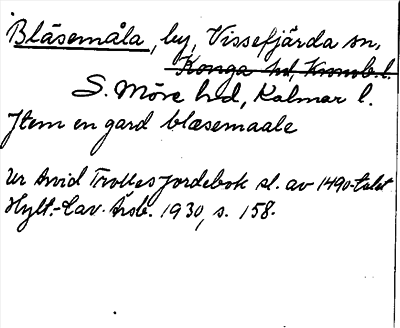 Bläsemåla, by, Vissefjärda sn,
Konga hd, Kronob. l.
S. Möre hd, Kalmar l.
Jtem en gard blæsemaale
Ur Arvid Trolles Jordebok sl. av 1490-talet
Hylt.-Cav. Årsb. 1930, s. 158.